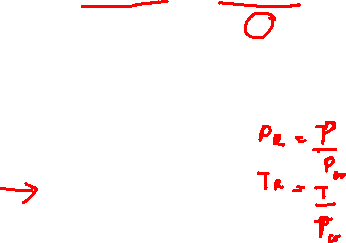 P_R = P / P_cr
T_R = T / P_cr